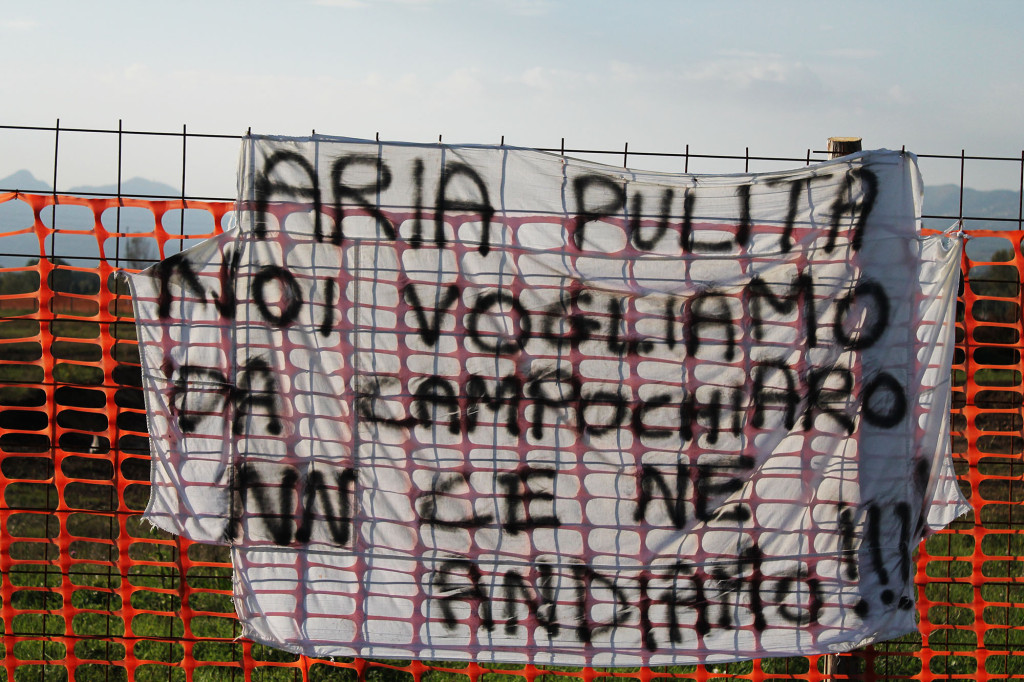 ARIA PULITA
NOI VOGLIAMO
DA CAMPOCHIARO
NN CE NE
ANDIAMO!!!